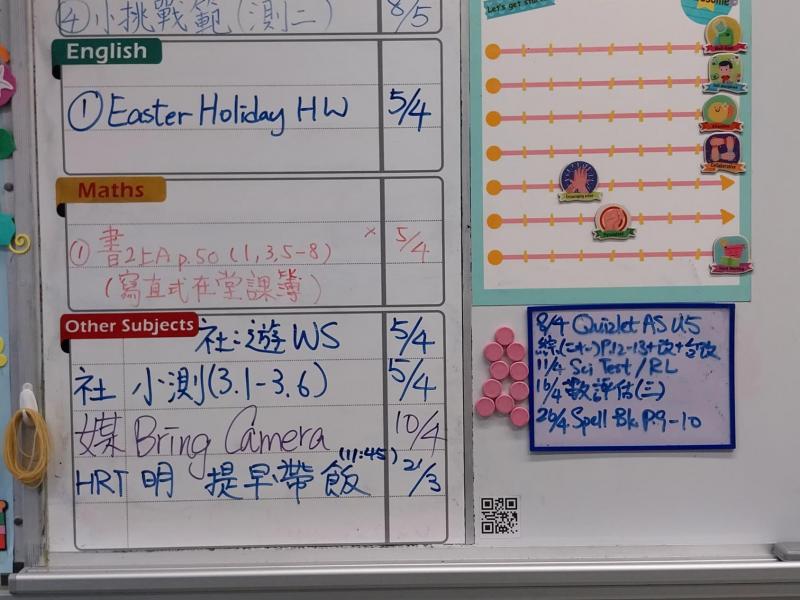 ④ 小挑戰範 (測二) 8/5
English
① Easter Holiday HW 5/4
Maths
① 書2上A p.50 (1, 3, 5-8) × 5/4
(寫直式在堂課簿)
Other Subjects
社:遊 WS 5/4
社 小測(3.1-3.6) 5/4
媒 Bring Camera 10/4
HRT 明 提早帶飯 (11:45) 21/3
Let's get
Encouraging
Collaborative
8/4 Quizlet AS U5
綜(二十一)P.12-13+改+台改
11/4 Sci Test / RL
16/4 數評估(三)
26/4 Spell Bk P.9-10